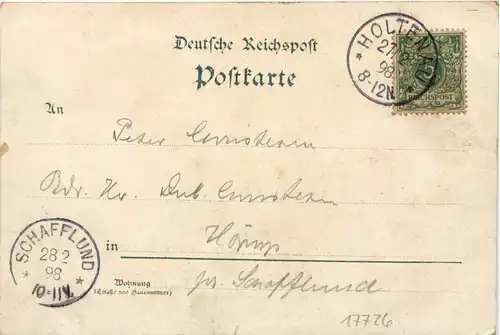 Deutsche Reichspost
Postkarte
HOLTENAU
27
98
8-12N.
REICHSPOST
An
Peter Christensen
Adr. Hr.
in Hörup
pr. Schafflund
SCHAFFLUND
28 2
98
10-11V.
Wohnung
(Straße und Hausnummer)
17726